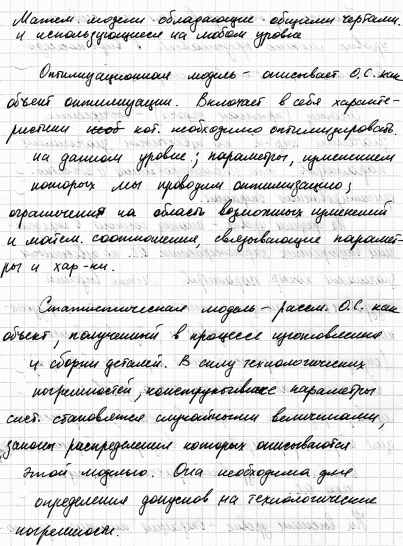 Матем. модели обладающие общими чертами.
и использующиеся на любом уровне
Оптимизационная модель - описывает О.С. как
объект оптимизации. Включает в себя характе-
ристики кот. необходимо оптимизировать.
на данном уровне; параметры, изменением
которых мы проводим оптимизацию;
ограничения на область возможных изменений
и матем. соотношения, связывающие парамет-
ры и хар-ки.
Статистическая модель - рассм. О.С. как
объект, полученный в процессе изготовления
и сборки деталей. В силу технологических
погрешностей, конструктивные параметры
сист. становятся случайными величинами,
законы распределения которых описываются
этой моделью. Она необходима для
определения допусков на технологические
погрешности.